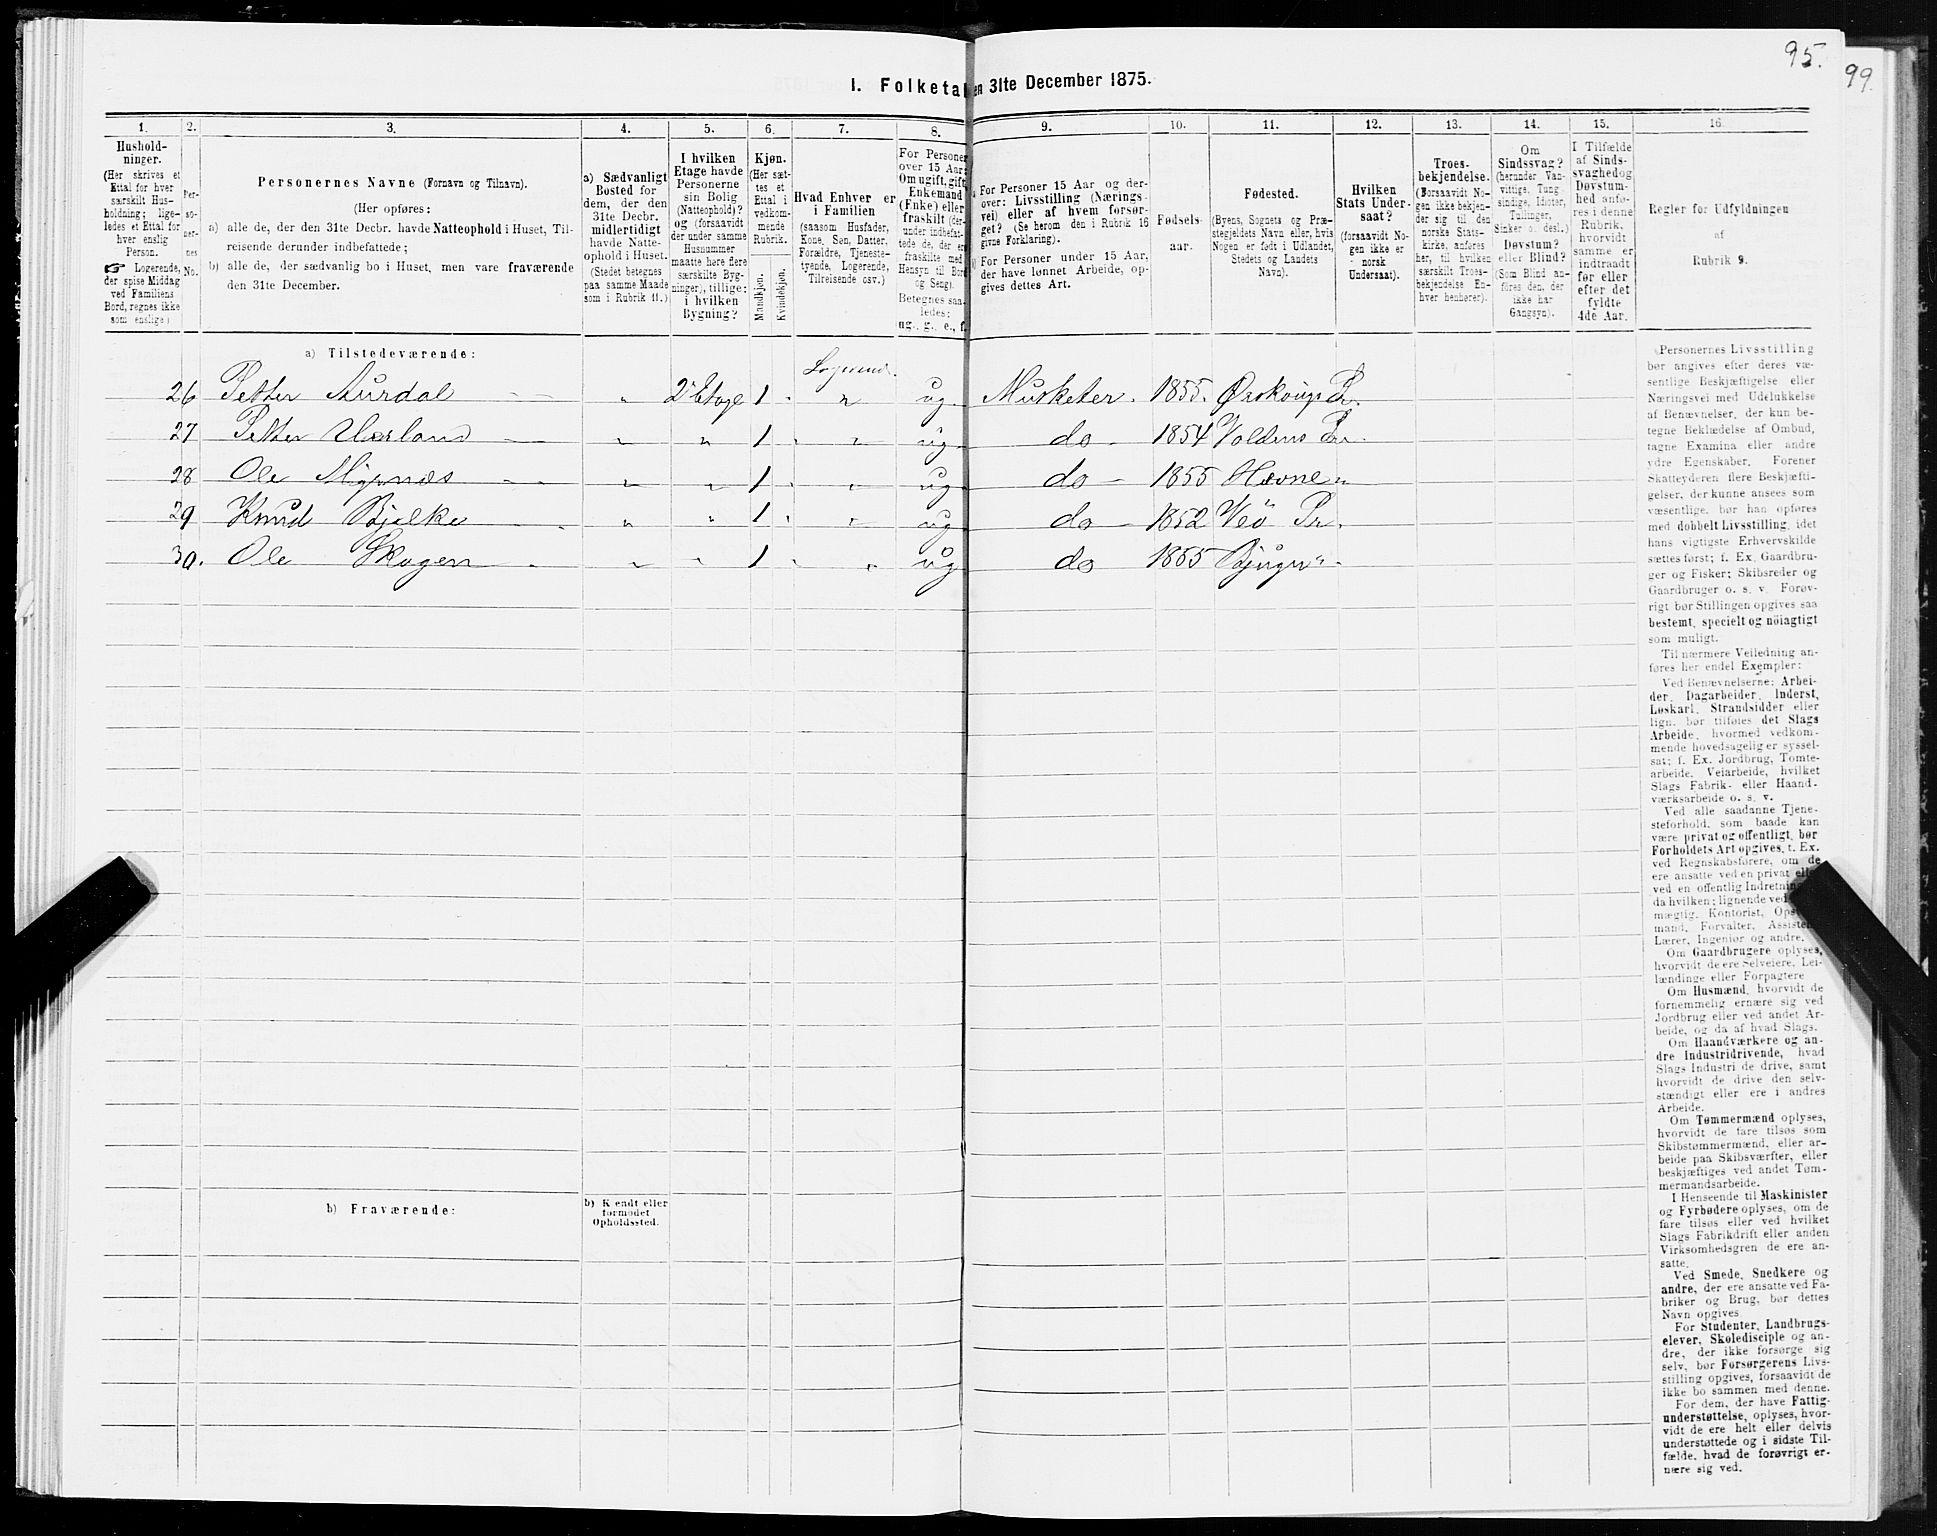 95.
99.
I. Folketal en 31te December 1875.
1. 2. 3. 4. 5. 6. 7. 8. 9. 10. 11. 12. 13. 14. 15. 16.
Hushold-
ninger.
(Her skrives et
Ettal for hver
særskilt Hus-
holdning; lige-
ledes et Ettal for
hver enslig
Person.
☞ Logerende,
der spise Middag
ved Familiens
Bord, regnes ikke
som enslige.)
Per-
so-
ner-
nes
No.
Personernes Navne (Fornavn og Tilnavn).
(Her opføres:
a) alle de, der den 31te Decbr. havde Natteophold i Huset, Til-
reisende derunder indbefattede;
b) alle de, der sædvanlig bo i Huset, men vare fraværende
den 31te December.
a) Sædvanligt
Bosted for
dem, der den
31te Decbr.
midlertidigt
havde Natte-
ophold i Huset.
(Stedet betegnes
paa samme Maade
som i Rubrik 11.)
I hvilken
Etage havde
Personerne
sin Bolig
(Natteophold)?
og (forsaavidt
der under samme
Husnummer
maatte høre flere
særskilte Byg-
ninger), tillige:
i hvilken
Bygning?
Kjøn.
(Her sæt-
tes et
Ettal i
vedkom-
mende
Rubrik.
Mandkjøn.
Kvindekjøn.
Hvad Enhver er
i Familien
(saasom Husfader,
Kone, Søn, Datter,
Forældre, Tjeneste-
tyende, Logerende,
Tilreisende osv.)
For Personer
over 15 Aar:
Om ugift, gift,
Enkemand
(Enke) eller
fraskilt (der-
under indbefat-
tede de, der ere
fraskilte med
Hensyn til Bord
og Seng).
Betegnes saa-
ledes:
ug., g., e., f.
For Personer 15 Aar og der-
over: Livsstilling (Nærings-
vei) eller af hvem forsør-
get? (Se herom den i Rubrik 16
givne Forklaring).
For Personer under 15 Aar,
der have lønnet Arbeide, op-
gives dettes Art.
Fødsels-
aar.
Fødested.
(Byens, Sognets og Præ-
stegjeldets Navn eller, hvis
Nogen er født i Udlandet,
Stedets og Landets
Navn).
Hvilken
Stats Under-
saat?
(forsaavidt No-
gen ikke er
norsk
Undersaat).
Troes-
bekjendelse.
(Forsaavidt No-
gen ikke bekjen-
der sig til den
norske Stats-
kirke, anføres
her, til hvilken
særskilt Troes-
bekjendelse En-
hver henhører).
Om
Sindssvag?
(herunder Van-
vittige, Tung-
sindige, Idioter,
Tullinger,
Sinker o. desl.)
Døvstum?
eller Blind?
(Som Blind an-
føres den, der
ikke har
Gangsyn).
I Tilfælde
af Sinds-
svaghed og
Døvstum-
hed anfø-
res i denne
Rubrik,
hvorvidt
samme er
indtraadt
før eller
efter det
fyldte
4de Aar.
Regler for Udfyldningen
af
Rubrik 9.
a) Tilstedeværende:
26 Petter Aurdal " 2' Etage 1 . Logerende " ug. Musketer. 1855. Ørskougs Pr.
27 Petter " " 1 . " ug do 1854 Voldens Pr.
28 Ole " " 1 . " ug do 1855 Hevne "
29 Knud Bjelke " " 1 . " ug do 1852 Veö Pr.
30. Ole Skogen " " 1 . " ug do 1855 Bjugn "
b) Fraværende:
b) Kjendt eller
formodet
Opholdssted.
Personernes Livsstilling
bør angives efter deres væ-
sentlige Beskjæftigelse eller
Næringsvei med Udelukkelse
af Benævnelser, der kun be-
tegne Beklædelse af Ombud,
tagne Examina eller andre
ydre Egenskaber. Forener
Skatteyderen flere Beskjæfti-
gelser, der kunne ansees som
væsentlige, bør han opføres
med dobbelt Livsstilling, idet
hans vigtigste Erhvervskilde
sættes først; f. Ex. Gaardbru-
ger og Fisker; Skibsreder og
Gaardbruger o. s. v. Forøv-
rigt bør Stillingen opgives saa
bestemt, specielt og nöiagtigt
som muligt.
Til nærmere Veiledning an-
føres her endel Exempler:
Ved Benævnelserne: Arbei-
der, Dagarbeider, Inderst,
Løskarl, Strandsidder eller
lign. bør tilføies det Slags
Arbeide, hvormed vedkom-
mende hovedsagelig er syssel-
sat; f. Ex. Jordbrug, Tomte-
arbeide, Veiarbeide, hvilket
Slags Fabrik- eller Haand-
værksarbeide o. s. v.
Ved alle saadanne Tjene-
steforhold, som baade kan
være privat og offentligt, bør
Forholdets Art opgives, f. Ex.
ved Regnskabsførere, om de
ere ansatte ved en privat eller
ved en offentlig Indretning
da hvilken; lignende ved
mægtig, Kontorist, Ops
mand, Forvalter, Assistent
Lærer, Ingeniør og andre.
Om Gaardbrugere oplyses,
hvorvidt de ere Selveiere, Lei-
lændinge eller Forpagtere
Om Husmænd, hvorvidt de
fornemmelig ernære sig ved
Jordbrug eller ved andet Ar-
beide, og da af hvad Slags.
Om Haandværkere og an-
dre Industridrivende, hvad
Slags Industri de drive, samt
hvorvidt de drive den selv-
stændigt eller ere i andres
Arbeide.
Om Tømmermænd oplyses,
hvorvidt de fare tilsøs som
Skibstømmermænd, eller ar-
beide paa Skibsværfter, eller
beskjæftiges ved andet Tøm-
mermandsarbeide.
I Henseende til Maskinister
og Fyrbødere oplyses, om de
fare tilsøs eller ved hvilket
Slags Fabrikdrift eller anden
Virksomhedsgren de ere an-
satte.
Ved Smede, Snedkere og
andre, der ere ansatte ved Fa-
briker og Brug, bør dettes
Navn opgives.
For Studenter, Landbrugs-
elever, Skoledisciple og an-
dre, der ikke forsørge sig
selv, bør Forsørgerens Livs-
stilling opgives, forsaavidt de
ikke bo sammen med denne.
For dem, der have Fattig-
understøttelse, oplyses, hvor-
vidt de ere helt eller delvis
understøttede og i sidste Til-
fælde, hvad de forøvrigt er-
nære sig ved.